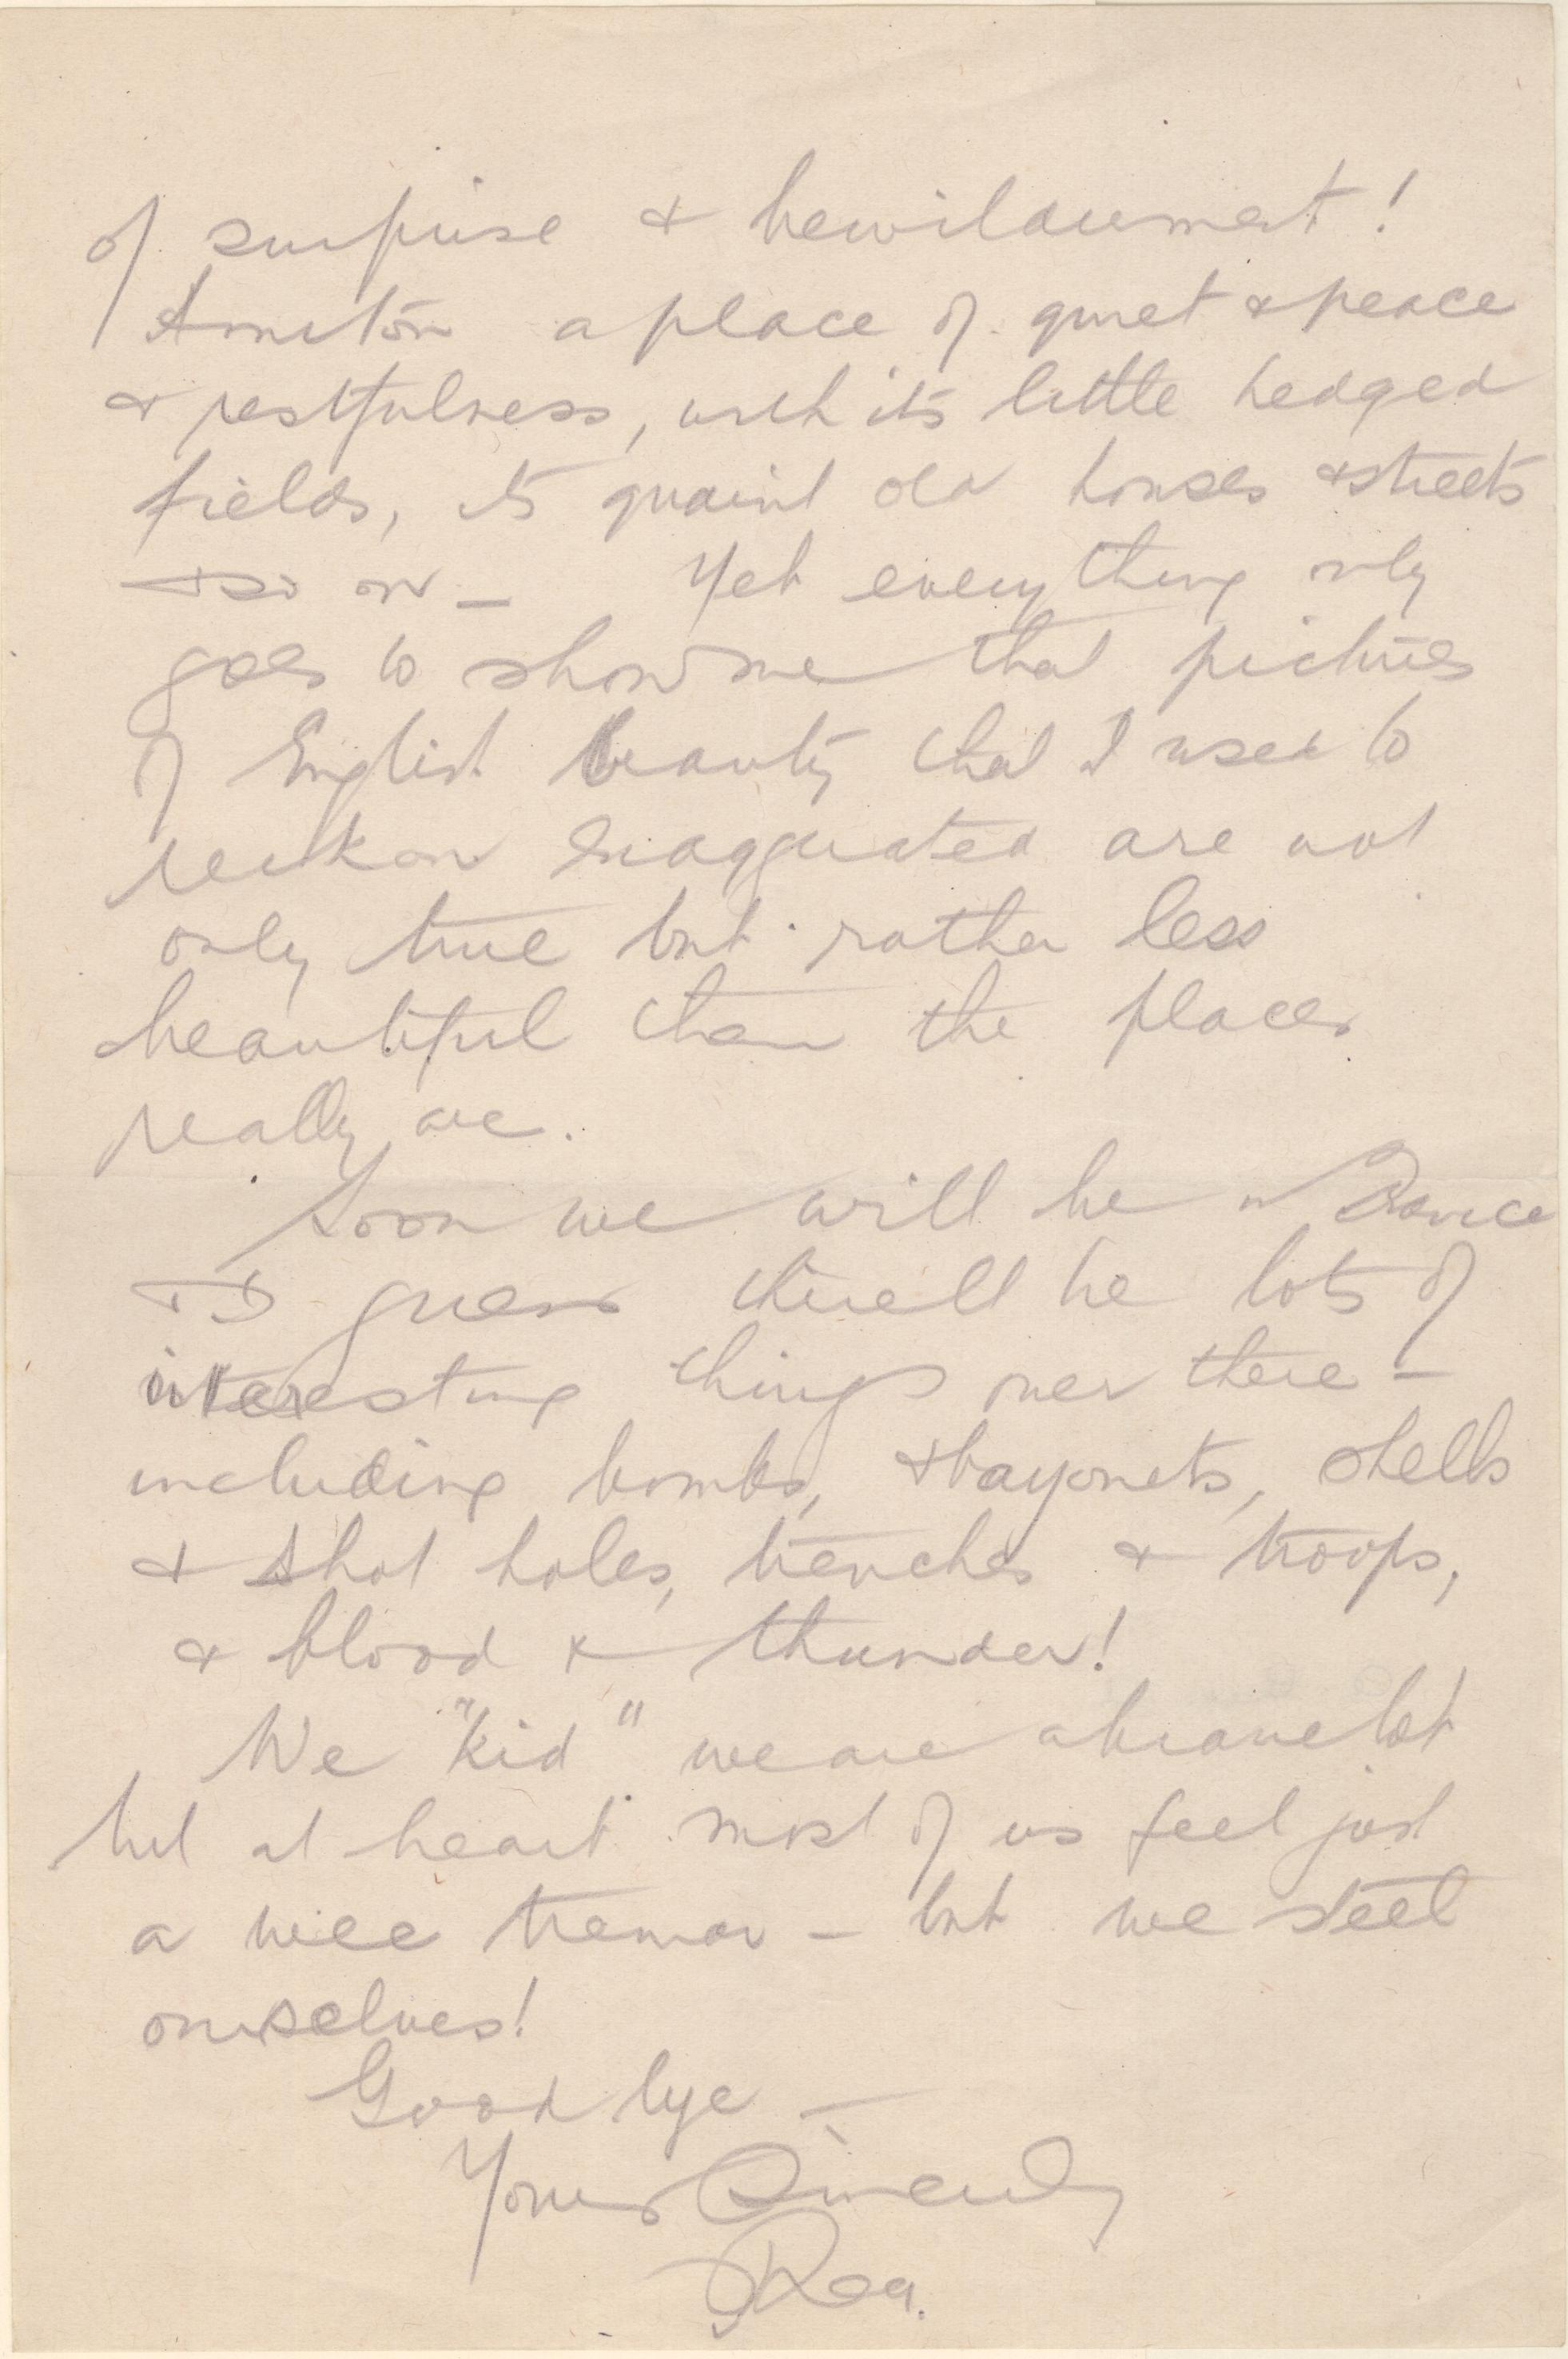 of surprise & bewilderment!
a place of quiet & peace
& restfulness, with its little hedged
fields, its quaint old houses & streets
& so on — Yet everything only
goes to show me that pictures
of English beauty that I used to
reckon exaggerated are not
only true but rather less
beautiful than the places
really are.
Soon we will be in France
& I guess there'll be lots of
interesting things over there —
including bombs, & bayonets, shells
& shot holes, trenches & troops,
& blood & thunder!
We "kid" we are a brave lot
but at heart most of us feel just
a wee tremor — but we steel
ourselves!
Good bye —
Yours Sincerely
Reg.